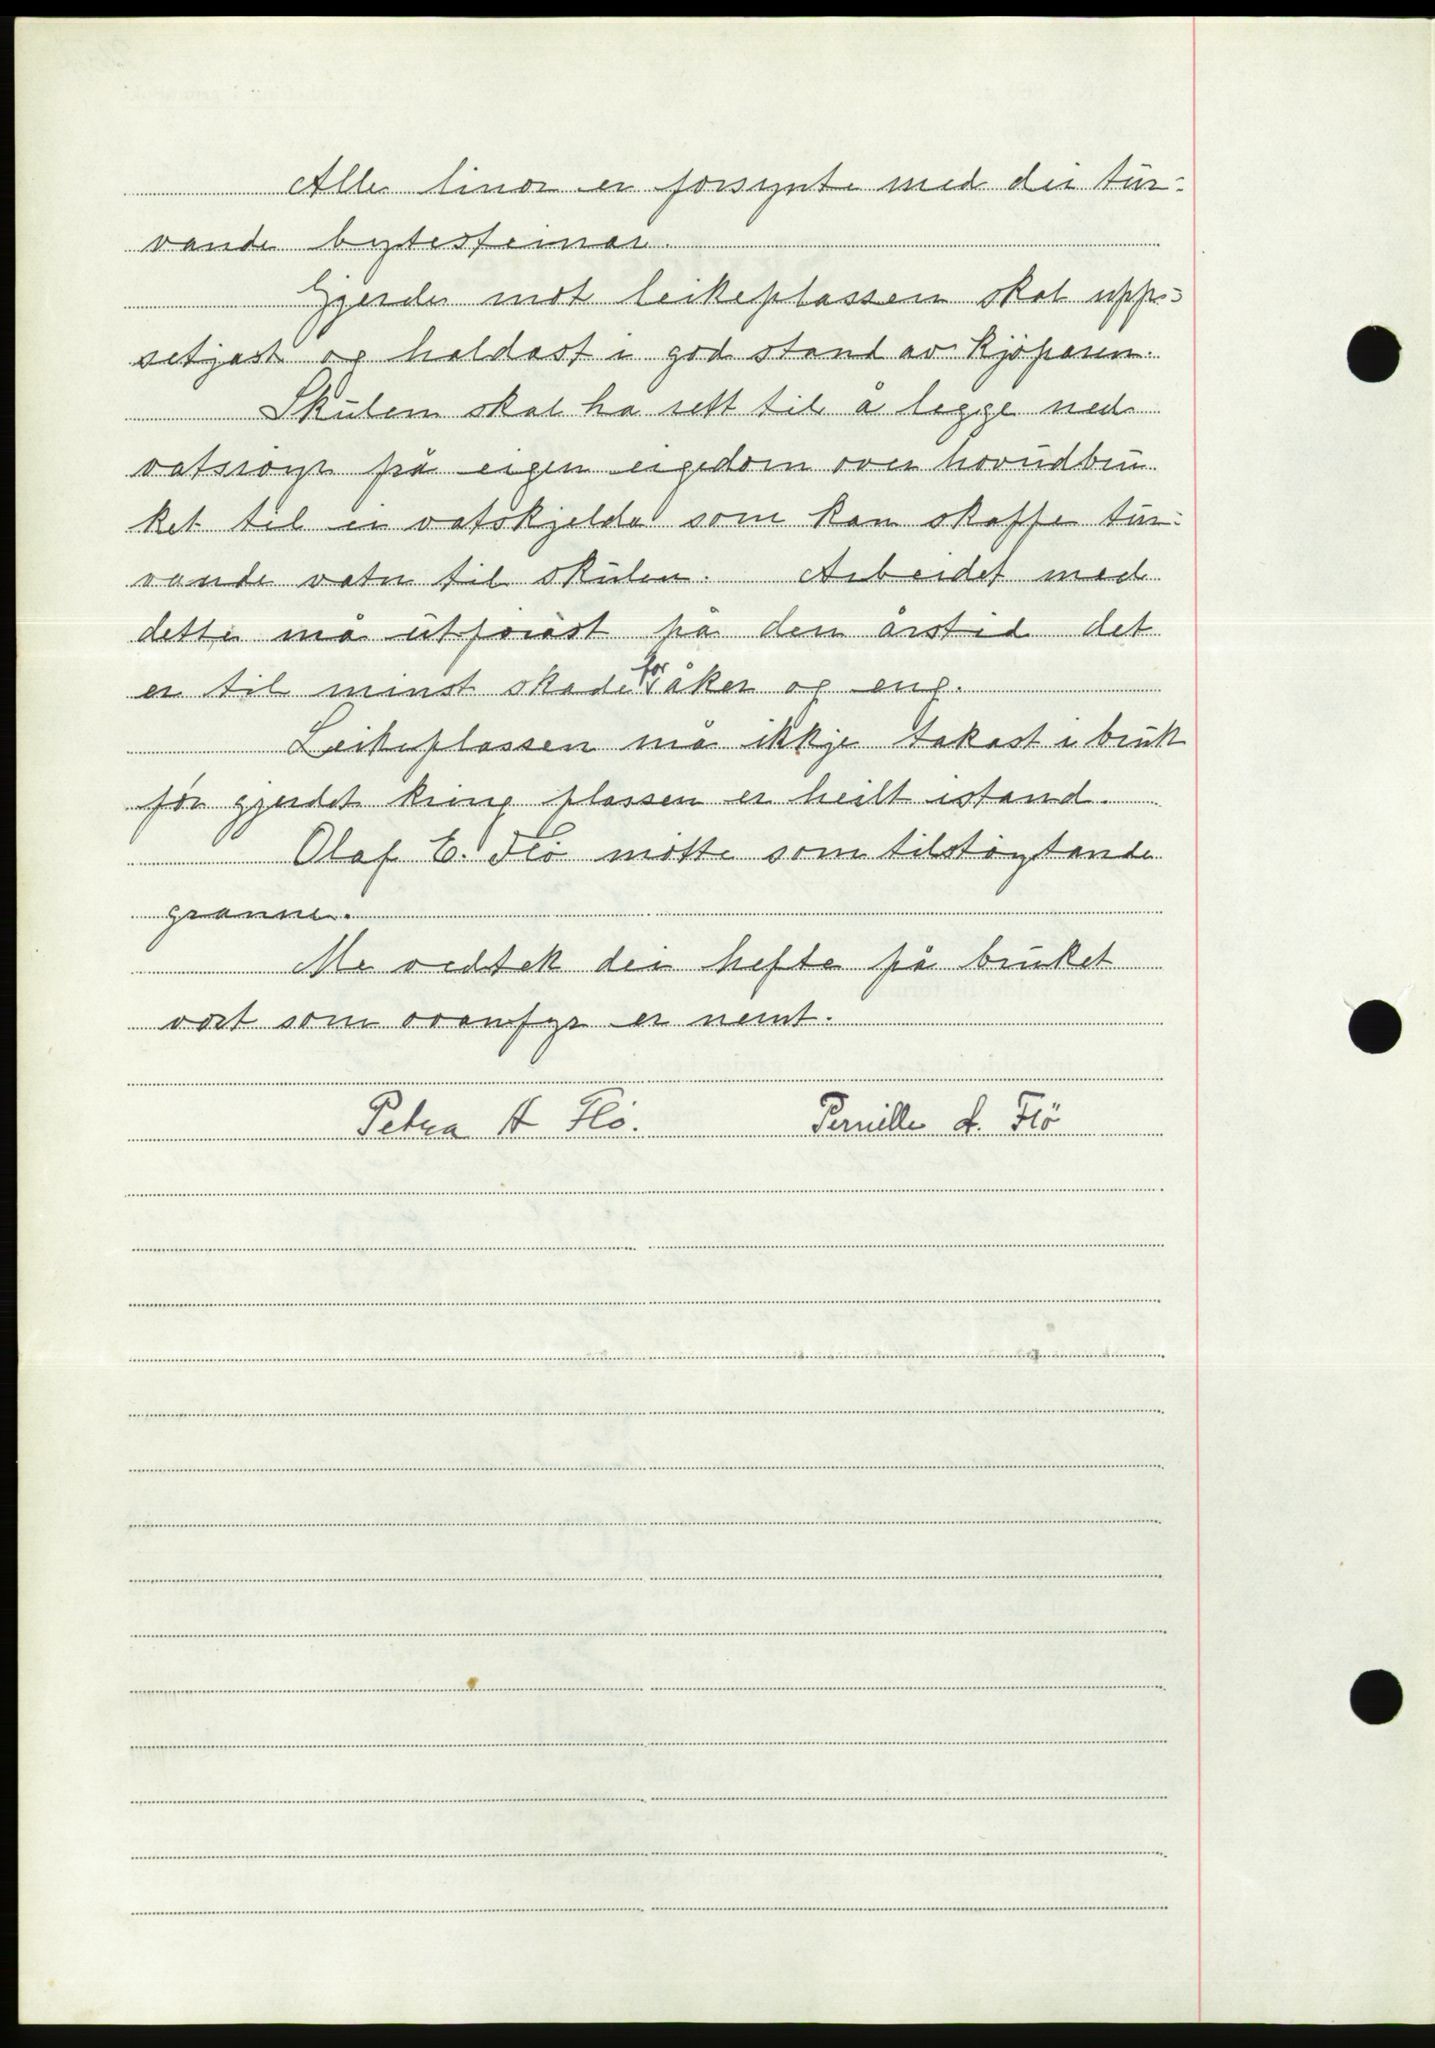 Alle linor er forsynte med dei tur-
vande bytesteinar.
Gjerde mot leikeplassen skal upp-
setjast og haldast i god stand av kjöparen.
Skulen skal ha rett til å legge ned
vatsröyr på eigen eigedom over hovudbru
ket til ei vatskjelda som kan skaffe tur-
vande vatn til skulen. Arbeidet med
dette må utförast på den årstid det
er til minst skade for åker og eng.
Leikeplassen må ikkje takast i bruk
för gjerdet kring plassen er heilt istand.
Olaf E. Flö mötte som tilstöytande
granne.
Me vedtek dei hefte på bruket
vårt som ovanfyr er nemt.
Petra A Flö. Pernille A. Flö